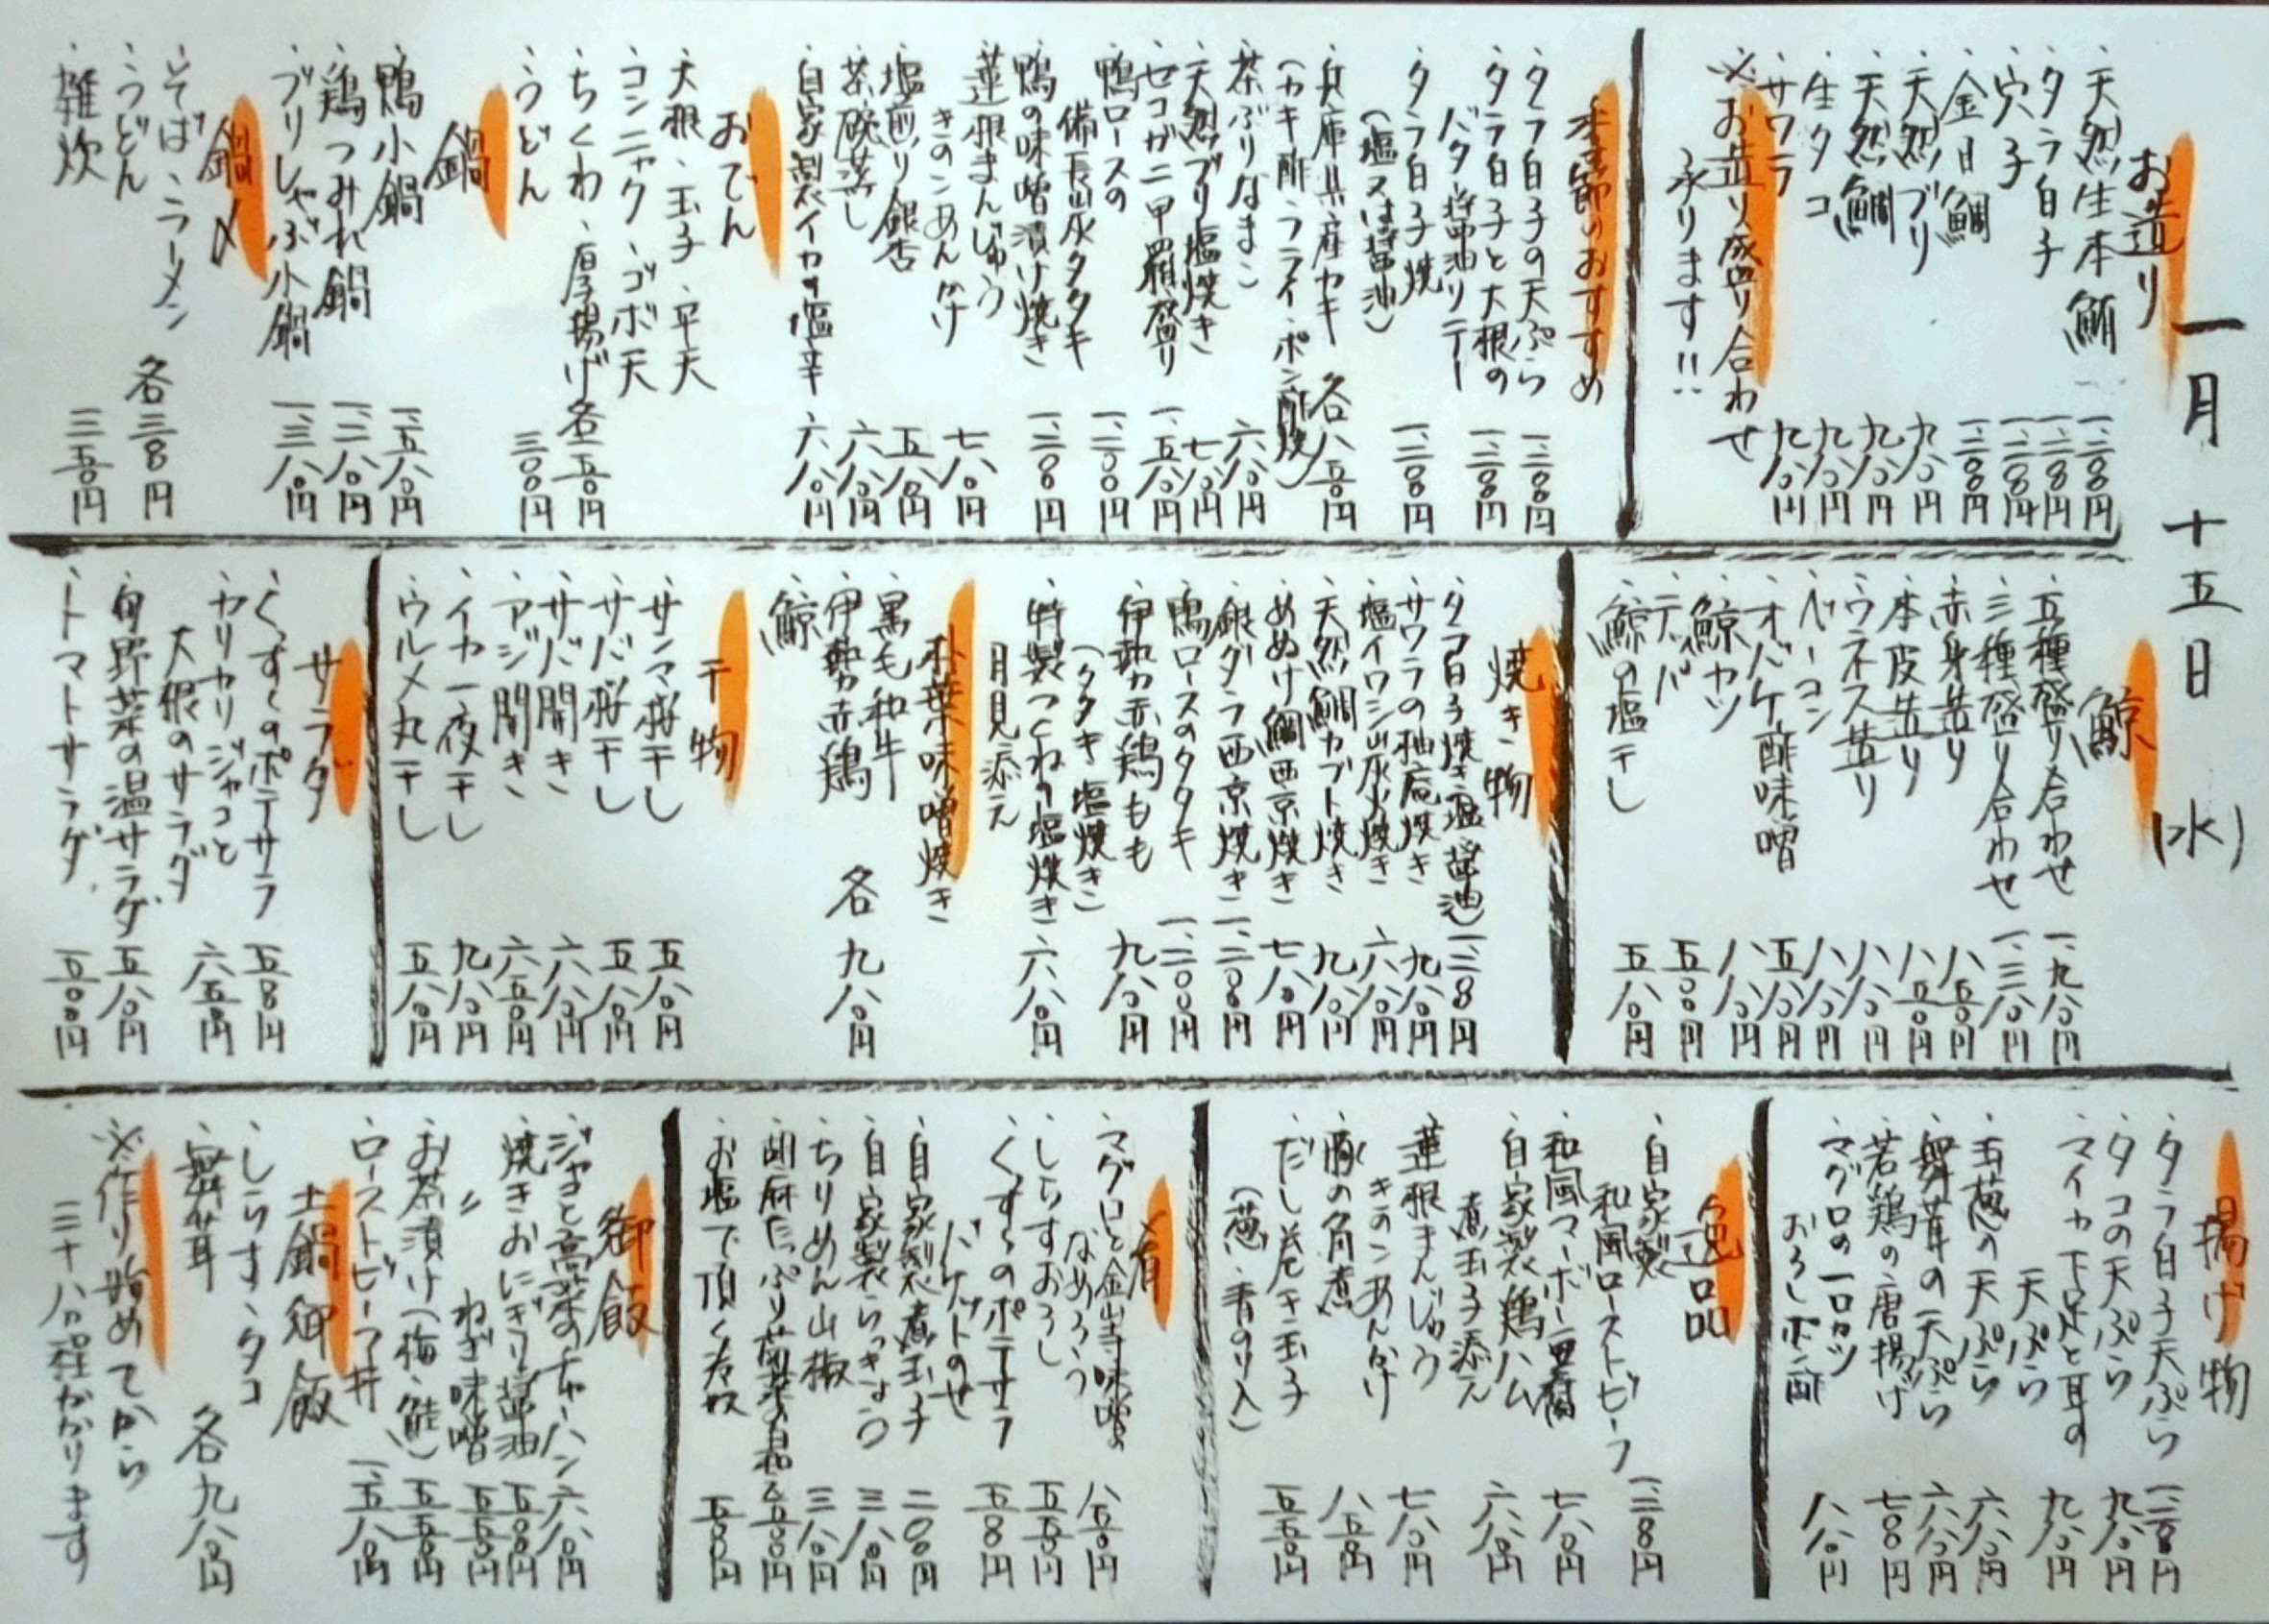 一月十五日(水)
お造り
、天然生本鮪 一、二〇〇円
、タラ白子
、穴子
、金目鯛
、天然ブリ 九八〇円
、天然鯛 九八〇円
、生タコ 九八〇円
、サワラ 九八〇円
※お造り盛り合わせ
承ります!!
季節のおすすめ
、タラ白子の天ぷら
、タラ白子と大根の
バター醤油ソテー
、タラ白子焼
(塩又は醤油)
、兵庫県産カキ 各八五〇円
(カキ酢・フライ・ポン酢焼)
、茶ぶりなまこ 六八〇円
、天然ブリ塩焼き 七八〇円
、セコガニ甲羅盛り 一、五八〇円
、鴨ロースの
備長炭タタキ 一、二〇〇円
、鴨の味噌漬け焼き
、蓮根まんじゅう
きのこあんかけ 七八〇円
、塩煎り銀杏 五八〇円
、茶碗蒸し 六八〇円
、自家製イカの塩辛 六八〇円
おでん
、大根、玉子、平天
、コンニャク、ゴボ天
、ちくわ、厚揚げ
、うどん 三〇〇円
鍋
、鴨小鍋 一、五八〇円
、鶏つみれ鍋
、ブリしゃぶ小鍋 一、三八〇円
鍋〆
、そば、ラーメン
、うどん
、雑炊 三五〇円
鯨
、五種盛り合わせ 一、九八〇円
、三種盛り合わせ 一、三八〇円
、赤身造り 八五〇円
、本皮造り 八五〇円
、ウネス造り 八八〇円
、ベーコン 八八〇円
、オバケ酢味噌 五八〇円
、鯨カツ 八八〇円
、テッパ 五五〇円
、鯨の塩干し 五八〇円
焼き物
、タラ白子焼き(塩・醤油)
、サワラの柚庵焼き 九八〇円
、塩イワシ炭火焼き 六八〇円
、天然鯛カブト焼き 九八〇円
、めぬけ鯛西京焼き 七八〇円
、銀ダラ西京焼き
、鴨ロースのタタキ 一、二〇〇円
、伊勢赤鶏もも
(タタキ・塩焼き) 九八〇円
、特製つくねの塩焼き
月見添え 六八〇円
朴葉味噌焼き
、黒毛和牛
、伊勢赤鶏
、鯨 各九八〇円
干物
、サンマ桜干し 五八〇円
、サバ桜干し 五八〇円
、サバ開き 六八〇円
、アジ開き 六五〇円
、イカ一夜干し 九八〇円
、ウルメ丸干し 五八〇円
サラダ
、くずしのポテサラ
、カリカリジャコと
大根のサラダ 六五〇円
、旬野菜の温サラダ 五八〇円
、トマトサラダ 五〇〇円
揚げ物
、タラ白子天ぷら
、タコの天ぷら 九八〇円
、マイカ下足と耳の
天ぷら 九八〇円
、玉葱の天ぷら 六八〇円
、舞茸の天ぷら 六八〇円
、若鶏の唐揚げ
、マグロの一口カツ
おろしポン酢 八八〇円
逸品
、自家製
和風ローストビーフ
、和風マーボー豆腐 七八〇円
、自家製鶏ハム
煮玉子添え 六八〇円
、蓮根まんじゅう
きのこあんかけ 七八〇円
、豚の角煮 八五〇円
、だし巻き玉子
(葱・青のり入) 五五〇円
肴
、マグロと金山寺味噌の
なめろう 八五〇円
、しらすおろし 五五〇円
、くずしのポテサラ
バゲットのせ
、自家製煮玉子 二〇〇円
、自家製らっきょう 三八〇円
、ちりめん山椒 三八〇円
、胡麻たっぷり
、お塩で頂く冷奴
御飯
、ジャコと高菜のチャーハン 六八〇円
、焼きおにぎり醤油
〃 ねぎ味噌 五五〇円
、お茶漬け(梅・鮭) 五五〇円
、ローストビーフ丼 一、五八〇円
土鍋御飯
、しらす、タコ
、舞茸 各九八〇円
※作り始めてから
三十八分程かかります